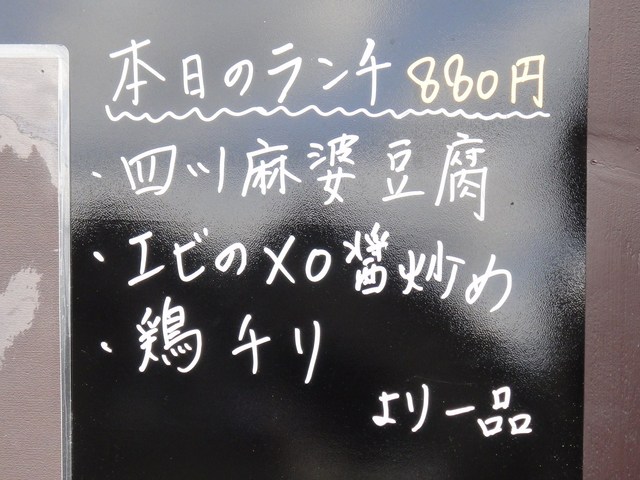 本日のランチ 880円
・四川麻婆豆腐
・エビのXO醤炒め
・鶏チリ
より一品